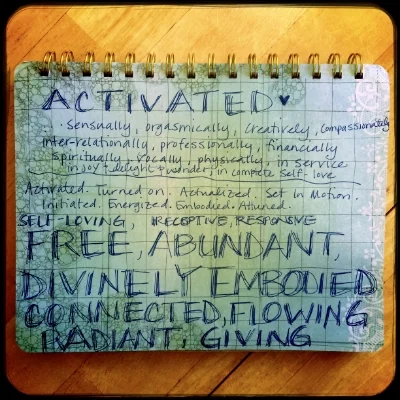 ACTIVATED ♥
· sensually, orgasmically, creatively, compassionately
inter-relationally, professionally, financially
spiritually, vocally, physically, in service
in joy + delight + wonder, in complete self-love
Activated. Turned on. Actualized. Set in Motion.
Initiated. Energized. Embodied. Attuned.
SELF-LOVING, RECEPTIVE, RESPONSIVE
FREE, ABUNDANT,
DIVINELY EMBODIED
CONNECTED, FLOWING
RADIANT, GIVING